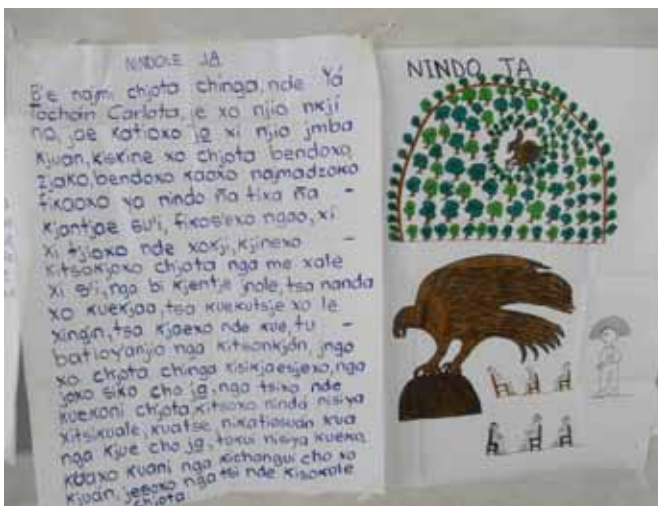 NINDOLE JA
B'e najmi chjota chinga, nde Yá
Tochoin Carlota, je xo njio nkji
na, jae katioxo ja xi njio jmba
kjuan, kiskine xo chjota bendoxo,
zjako, bendoxo kaoxo najmadzoko
fikaoxo ya nindo ña tixa ña -
kjantjae su'i, fikos'exo ngao, xi
xi tjioxo nde xokji, kjinexo -
kitsokjoxo chjota nga me xale
xi s'i, nga bi kjentje jnole, tsa nanda
xo kuekjaa, tsa kuekutsje xo le
xingin, tsa kjaexo nde kue, tu -
batioyanjio nga kitsonkjón, jngo
xo chjota chinga kisikjaesjexo, nga
jexo siko cho ja, nga tsixo nde
kuekoni chjota, kitsoxo nindá nisiya
xitsikuale, kuatse, nikatiosuan kua
nga kjue cho ja, tokui nisiya kuexo,
kuaxo kuani nga kichangui cho xo
kjuán, jesoxo nga tsi nde kisokale
chjota
NINDO JA